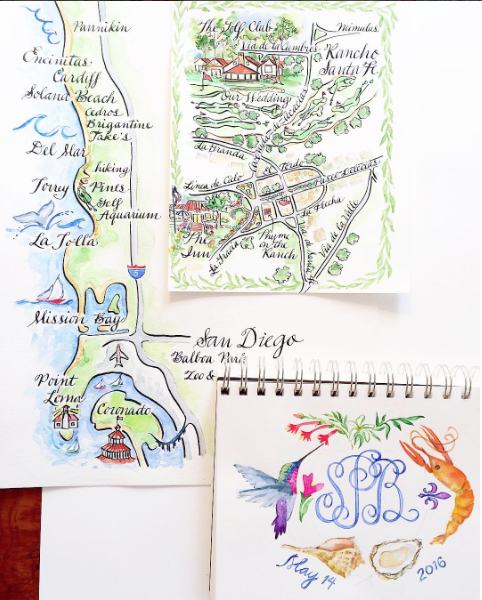 Pannikin
Encinitas
Cardiff
Solana Beach
Cedros
Brigantine
Jake's
Del Mar
hiking
Torrey Pines
Golf
Aquarium
La Jolla
5
Mission Bay
San Diego
Balboa Park
Zoo &
Point
Loma
Coronado
The Golf Club
Mimulus
Via de la Cumbres
Rancho
Santa Fe
Our Wedding
La Granda
Linea de Cielo
Paseo Delicias
La Flecha
The
Inn
La Gracia
Thyme
on the
Ranch
Via de Santa Fe
Via de la Valle
SPB
May 14
2016